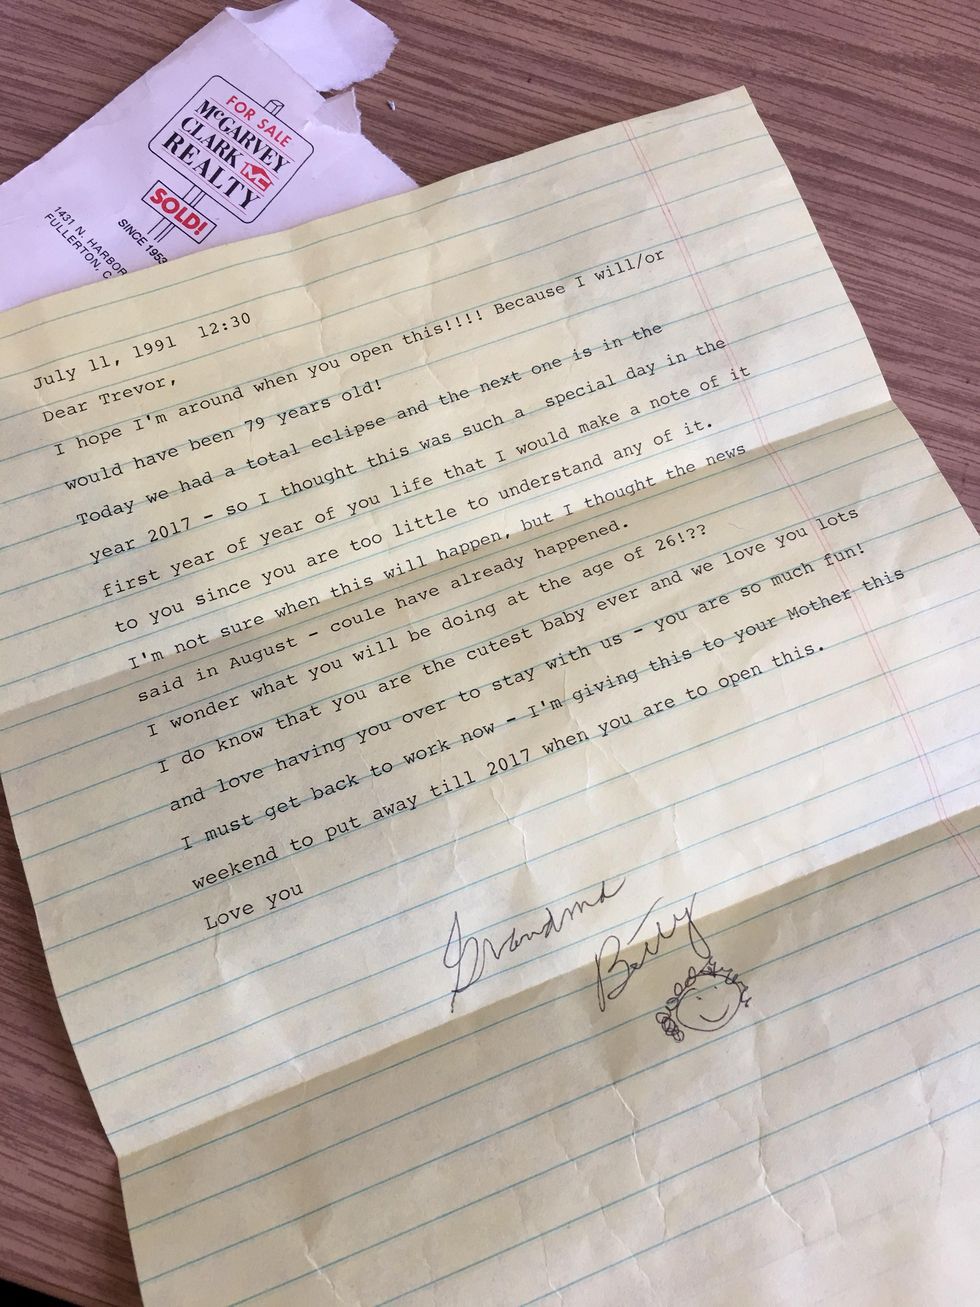 FOR SALE
McGARVEY
CLARK MC
REALTY
SOLD!
SINCE 1953
1431 N. HARBOR
FULLERTON, C
July 11, 1991  12:30
Dear Trevor,
I hope I'm around when you open this!!!! Because I will/or
would have been 79 years old!
Today we had a total eclipse and the next one is in the
year 2017 - so I thought this was such a  special day in the
first year of year of you life that I would make a note of it
to you since you are too little to understand any of it.
I'm not sure when this will happen, but I thought the news
said in August - coule have already happened.
I wonder what you will be doing at the age of 26!??
I do know that you are the cutest baby ever and we love you lots
and love having you over to stay with us - you are so much fun!
I must get back to work now - I'm giving this to your Mother this
weekend to put away till 2017 when you are to open this.
Love you
Grandma
Betty